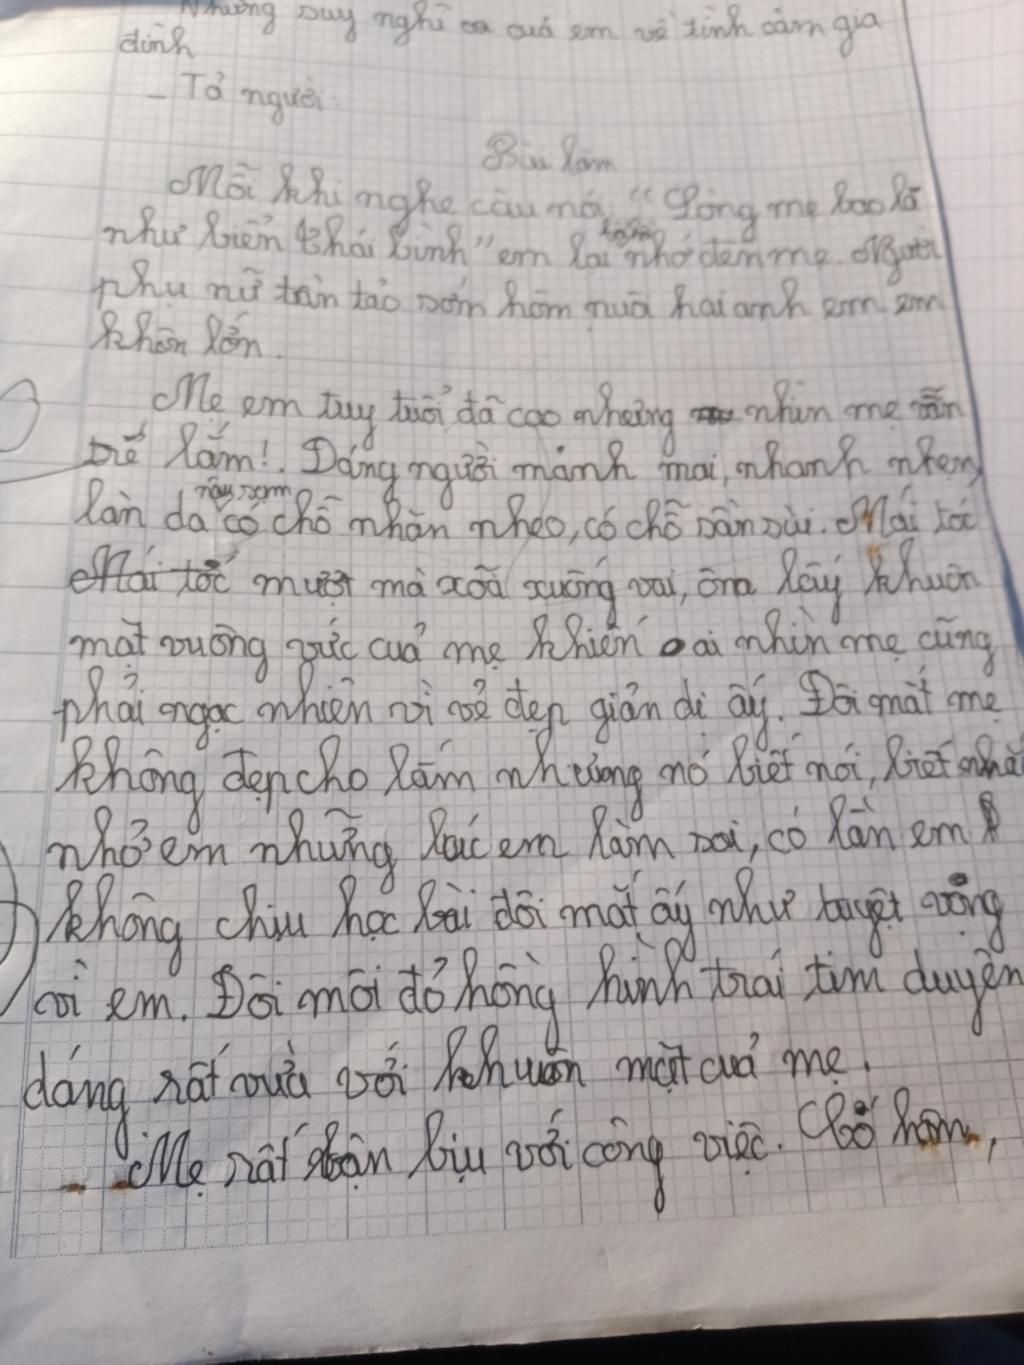 Những suy nghĩ của em về tình cảm gia
đình
- Tả người:
Bài làm
Mỗi khi nghe câu nói "Lòng mẹ bao la
như biển thái bình" em lại nhớ đến mẹ. Người
phụ nữ tần tảo sớm hôm nuôi hai anh em em
khôn lớn.
Mẹ em tuy tuổi đã cao nhưng nhìn mẹ vẫn
trẻ lắm!. Dáng người mảnh mai, nhanh nhẹn,
làn da rám nắng có chỗ nhăn nheo, có chỗ sần sùi. Mái tóc
Mái tóc mượt mà xoã xuống vai, ôm lấy khuôn
mặt vuông vức cuả mẹ khiến ai nhìn mẹ cũng
phải ngạc nhiên vì vẻ đẹp giản dị ấy. Đôi mắt mẹ
không đẹp cho lắm nhưng nó biết nói, biết nhắc
nhở em những lúc em làm sai, có lần em
không chịu học bài đôi mắt ấy như tuyệt vọng
vì em. Đôi môi đỏ hồng hình trái tim duyên
dáng rất vừa với khuôn mặt cuả mẹ.
Mẹ rất bận bịu với công việc. Có hôm,